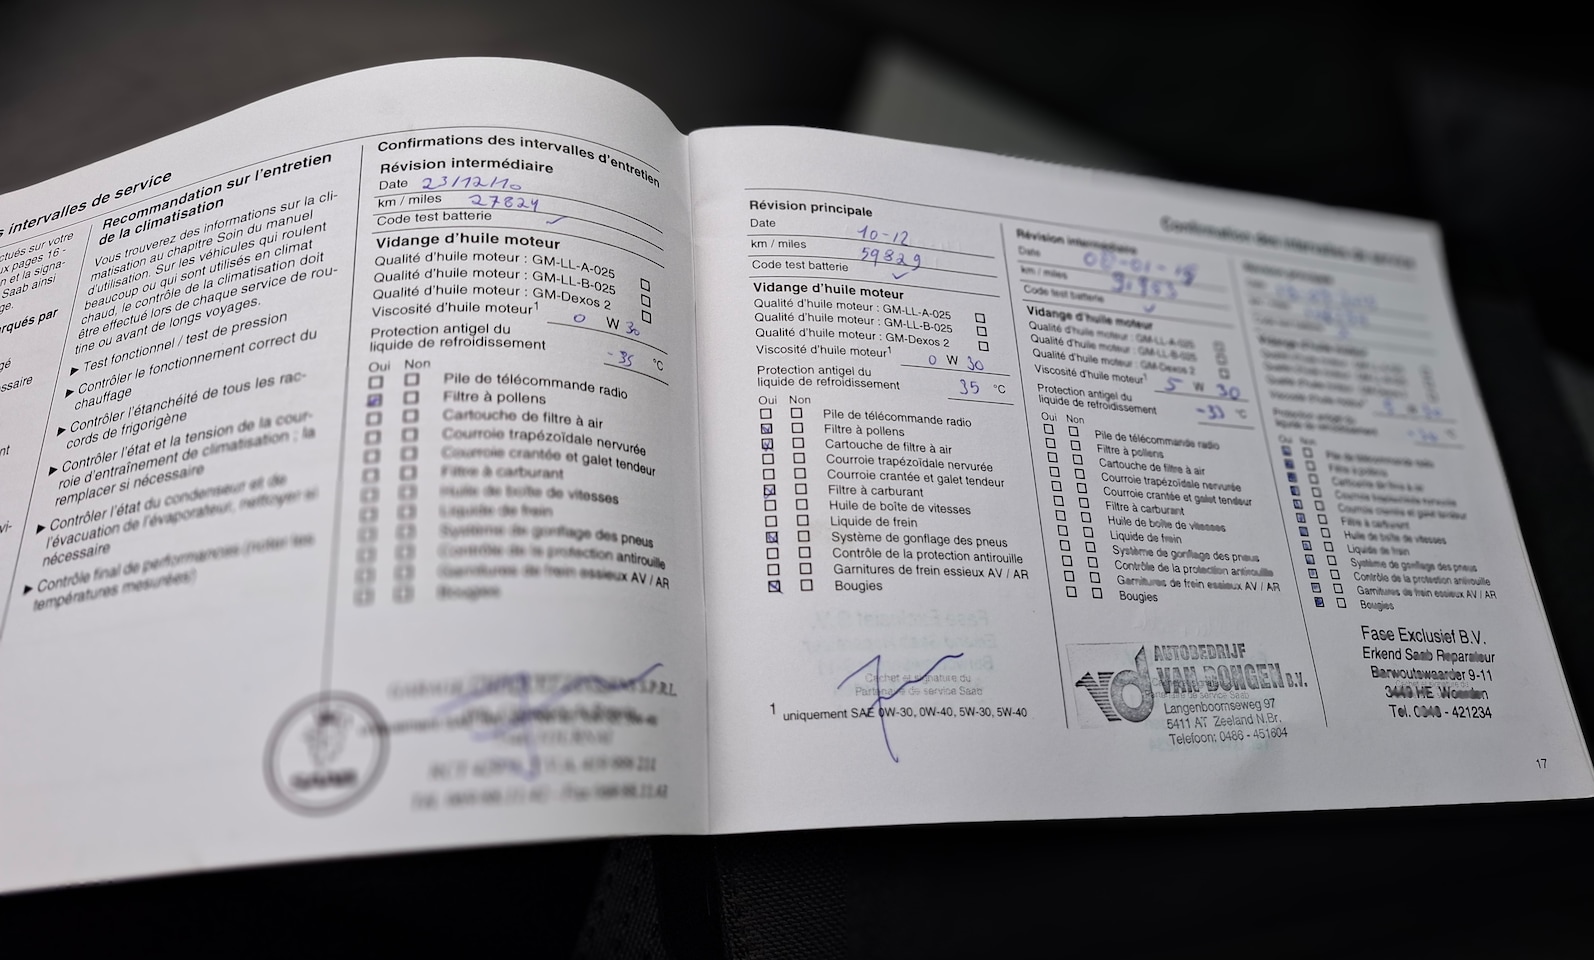 s intervalles de service
ctués sur votre
ux pages 16 -
n et la signa-
Saab ainsi
ge.
rqués par
gé
ssaire
nt
vi-
Recommandation sur l'entretien
de la climatisation
Vous trouverez des informations sur la cli-
matisation au chapitre Soin du manuel
d'utilisation. Sur les véhicules qui roulent
beaucoup ou qui sont utilisés en climat
chaud, le contrôle de la climatisation doit
être effectué lors de chaque service de rou-
tine ou avant de longs voyages.
► Test fonctionnel / test de pression
► Contrôler le fonctionnement correct du
chauffage
► Contrôler l'étanchéité de tous les rac-
cords de frigorigène
► Contrôler l'état et la tension de la cour-
roie d'entraînement de climatisation ; la
remplacer si nécessaire
► Contrôler l'état du condenseur et de
l'évacuation de l'évaporateur, nettoyer si
nécessaire
► Contrôle final de performances (noter les
températures mesurées)
Confirmations des intervalles d'entretien
Révision intermédiaire
Date 23/12/10
km / miles 27824
Code test batterie
Vidange d'huile moteur
Qualité d'huile moteur : GM-LL-A-025
Qualité d'huile moteur : GM-LL-B-025
Qualité d'huile moteur : GM-Dexos 2
Viscosité d'huile moteur1 0 W 30
Protection antigel du
liquide de refroidissement -35 °C
Oui Non
Pile de télécommande radio
Filtre à pollens
Cartouche de filtre à air
Courroie trapézoïdale nervurée
Courroie crantée et galet tendeur
Filtre à carburant
Huile de boîte de vitesses
Liquide de frein
Système de gonflage des pneus
Contrôle de la protection antirouille
Garnitures de frein essieux AV / AR
Bougies
S.P.R.L.
Révision principale
Date 10-12
km / miles 59829
Code test batterie
Vidange d'huile moteur
Qualité d'huile moteur : GM-LL-A-025
Qualité d'huile moteur : GM-LL-B-025
Qualité d'huile moteur : GM-Dexos 2
Viscosité d'huile moteur1 0 W 30
Protection antigel du
liquide de refroidissement 35 °C
Oui Non
Pile de télécommande radio
Filtre à pollens
Cartouche de filtre à air
Courroie trapézoïdale nervurée
Courroie crantée et galet tendeur
Filtre à carburant
Huile de boîte de vitesses
Liquide de frein
Système de gonflage des pneus
Contrôle de la protection antirouille
Garnitures de frein essieux AV / AR
Bougies
Cachet et signature du
Partenaire de service Saab
1 uniquement SAE 0W-30, 0W-40, 5W-30, 5W-40
Confirmation des intervalles de service
Révision intermédiaire
Date
km / miles
Code test batterie
Vidange d'huile moteur
Qualité d'huile moteur : GM-LL-A-025
Qualité d'huile moteur : GM-LL-B-025
Qualité d'huile moteur : GM-Dexos 2
Viscosité d'huile moteur1 5 W 30
Protection antigel du
liquide de refroidissement -33 °C
Oui Non
Pile de télécommande radio
Filtre à pollens
Cartouche de filtre à air
Courroie trapézoïdale nervurée
Courroie crantée et galet tendeur
Filtre à carburant
Huile de boîte de vitesses
Liquide de frein
Système de gonflage des pneus
Contrôle de la protection antirouille
Garnitures de frein essieux AV / AR
Bougies
AUTOBEDRIJF
VAN DONGEN B.V.
Langenboomseweg 97
5411 AT Zeeland N.Br.
Telefoon: 0486 - 451604
Oui Non
Pile de télécommande radio
Filtre à pollens
Cartouche de filtre à air
Courroie trapézoïdale nervurée
Courroie crantée et galet tendeur
Filtre à carburant
Huile de boîte de vitesses
Liquide de frein
Système de gonflage des pneus
Contrôle de la protection antirouille
Garnitures de frein essieux AV / AR
Bougies
Fase Exclusief B.V.
Erkend Saab Reparateur
Barwoutswaarder 9-11
3449 HE Woerden
Tel. - 421234
17